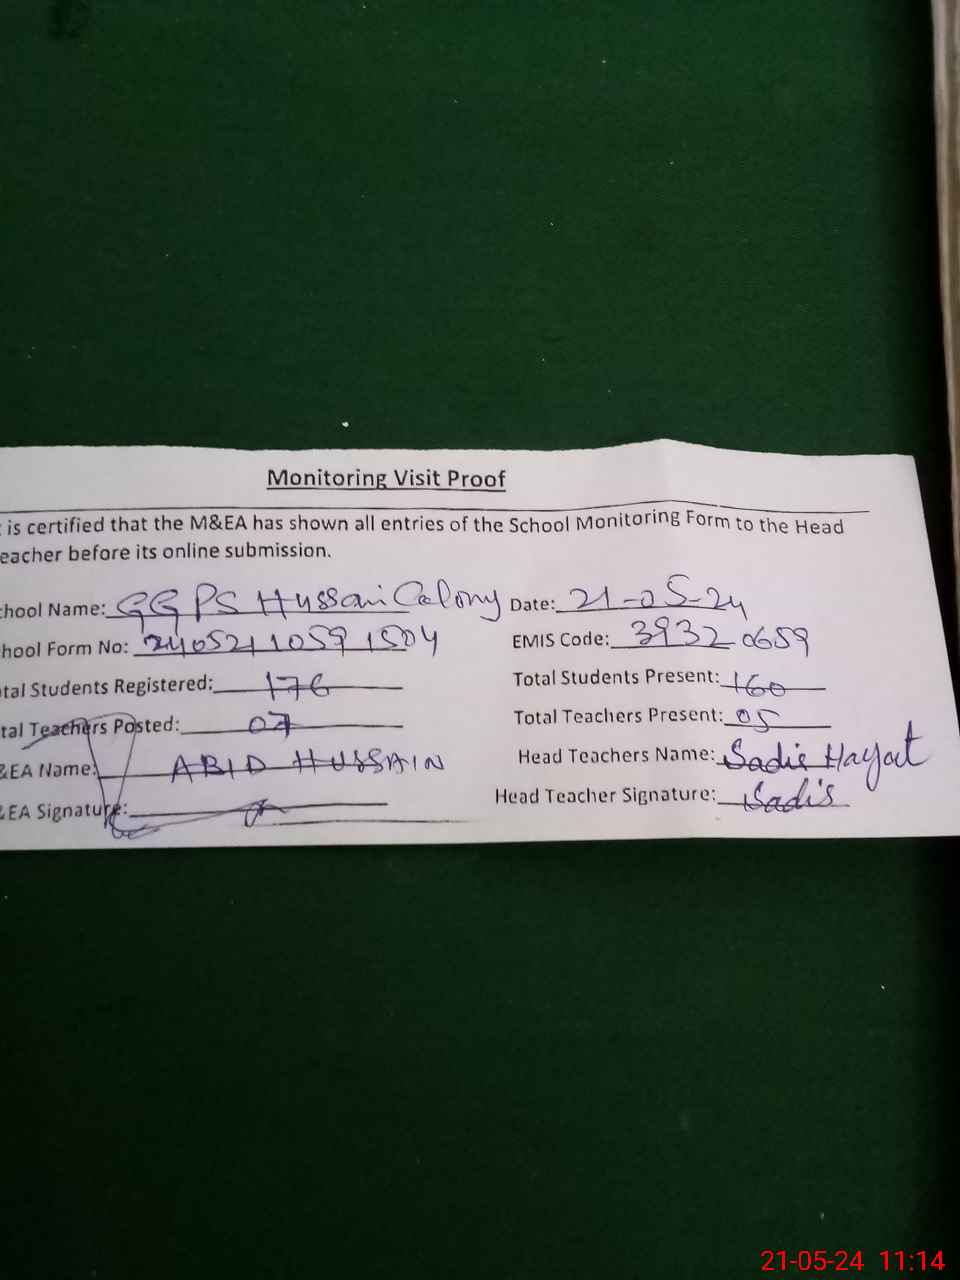 Monitoring Visit Proof
is certified that the M&EA has shown all entries of the School Monitoring Form to the Head
eacher before its online submission.
chool Name: GGPS Hussain Colony Date: 21-05-24
hool Form No: 2405211059 1504 EMIS Code: 39320659
tal Students Registered: 176 Total Students Present: 160
tal Teachers Posted: 07 Total Teachers Present: 05
&EA Name: ABID HUSSAIN Head Teachers Name: Sadis Hayat
&EA Signature: Head Teacher Signature: Sadis
21-05-24 11:14